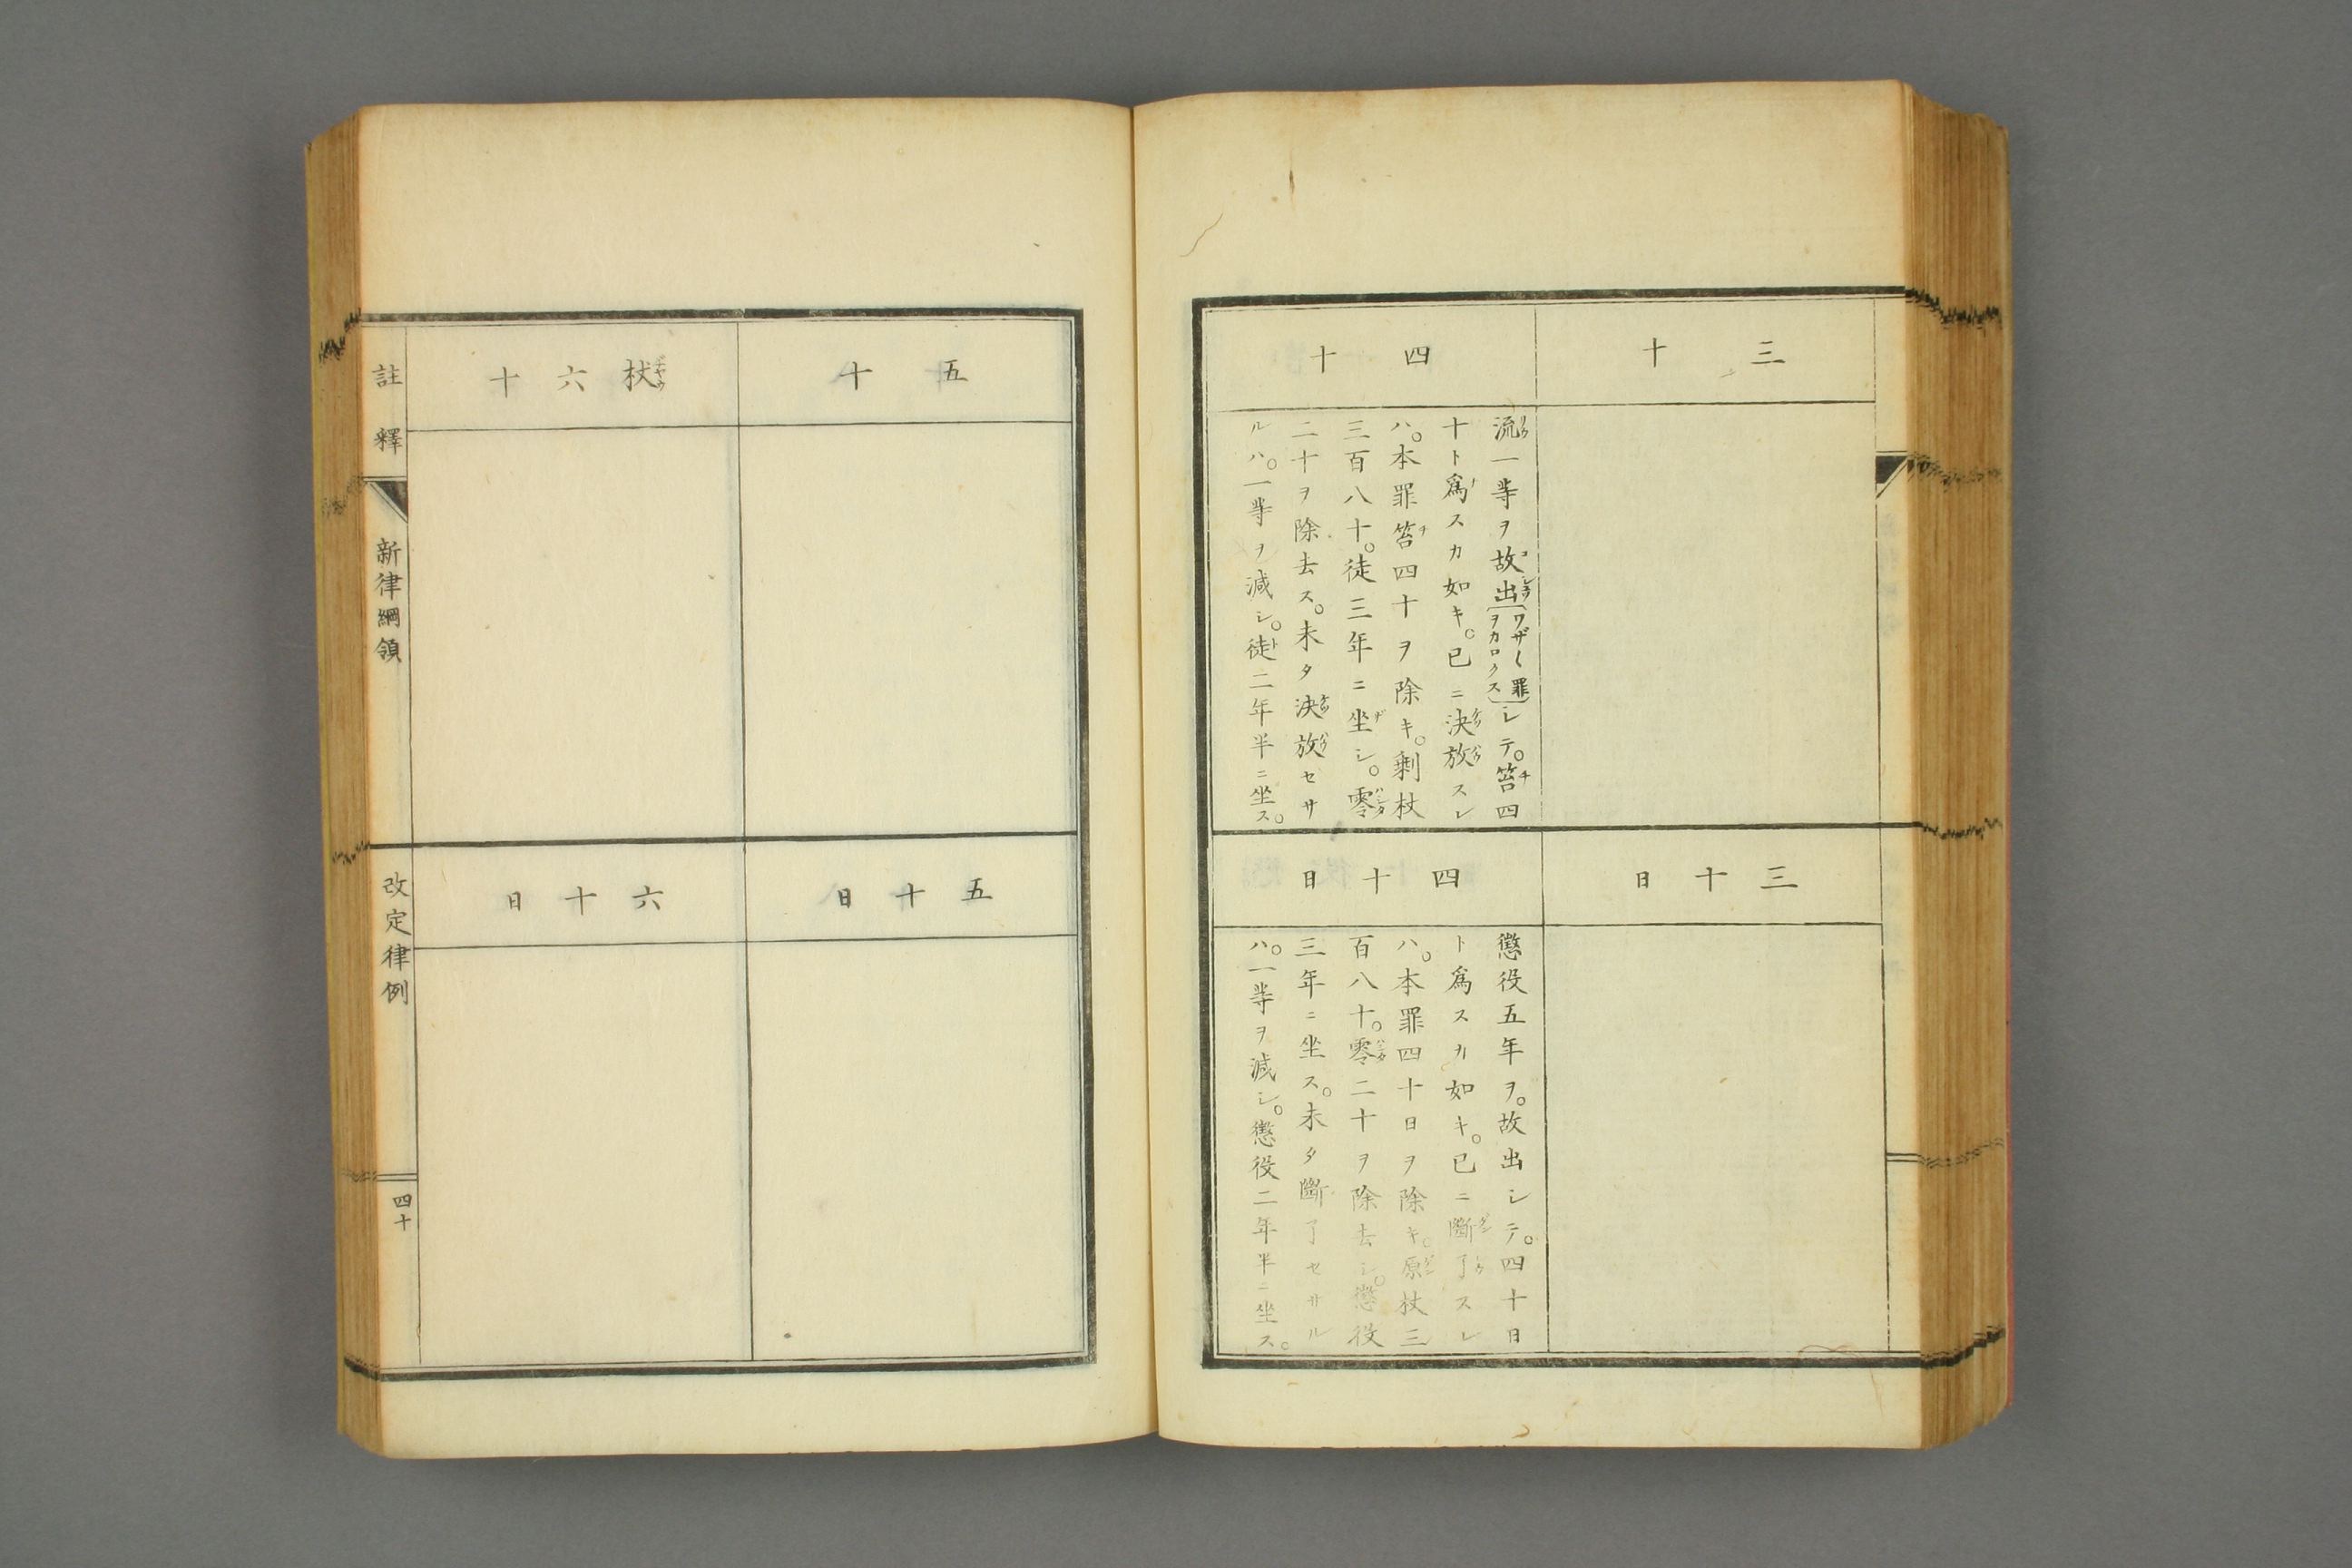 三十
四十
流一等ヲ故出[ワザ〳〵罪ヲカロクス]シテ。笞四
十ト爲スカ如キ。已ニ決放スレ
ハ。本罪笞四十ヲ除キ。剩杖
三百八十。徒三年ニ坐シ。零
二十ヲ除去ス。未タ決放セサ
ルハ。一等ヲ減シ。徒二年半ニ坐ス。
三十日
四十日
懲役五年ヲ。故出シテ。四十日
ト爲スカ如キ。已ニ斷了スレ
ハ。本罪四十日ヲ除キ。原杖三
百八十。零二十ヲ除去シ。懲役
三年ニ坐ス。未タ斷了セサル
ハ。一等ヲ減シ。懲役二年半ニ坐ス。
五十
杖六十
五十日
六十日
註釋
新律綱領
改定律例
四十